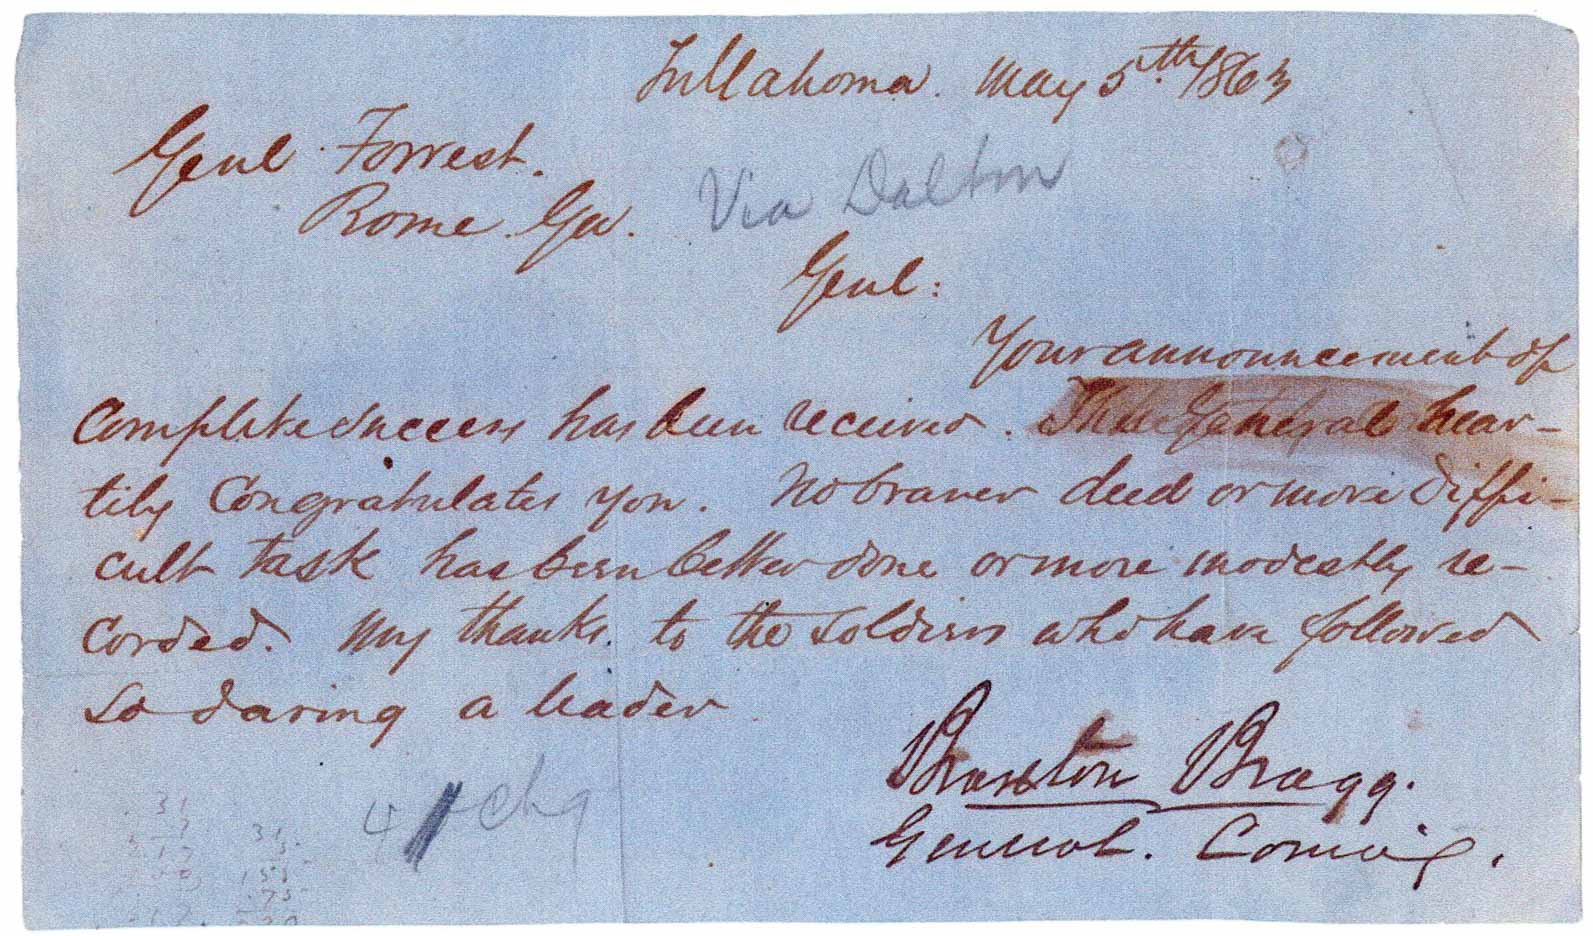 Tullahoma. May 5th. 1863
Genl Forrest.
Rome. Ga.
Via Dalton
Genl:
Your announcement of
Complete success has been received. The General hear-
tily Congratulates you. No braver deed or more diffi-
cult task has been better done or more modestly re-
corded. My thanks to the soldiers who have followed
so daring a leader
Braxton Bragg.
General. Comdg.
41 chg